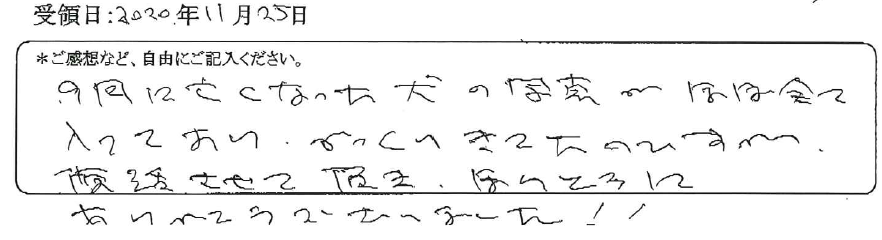 受領日:2020年11月25日
*ご感想など、自由にご記入ください。
9月に亡くなった犬の写真がほぼ全て
入っており、がっくりきてたのですが、
復活させて頂き、ほんとうに
ありがとうございました!!